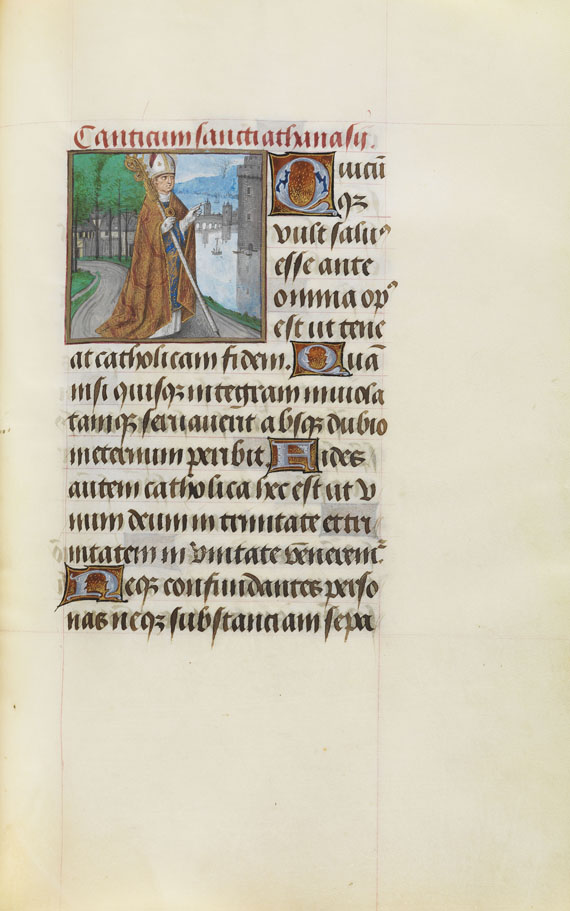 Canticum sancti athanasij.
Quicũ
qꝫ
vult saluꝰ
esse ante
omnia opꝰ
est ut tene
at catholicam fidem. Quã
nisi quisqꝫ integram inuiola
tamqꝫ seruauerit absqꝫ dubio
ineternum peribit. Fides
autem catholica hec est ut v
num deum in trinitate et tri
nitatem in vnitate venerem᷑.
Neqꝫ confundantes perso
nas neqꝫ substanciam sepa